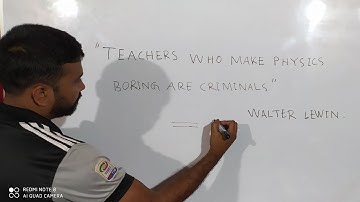 "TEACHERS WHO MAKE PHYSICS
BORING ARE CRIMINALS"
WALTER LEWIN.
REDMI NOTE 8
AI QUAD CAMERA